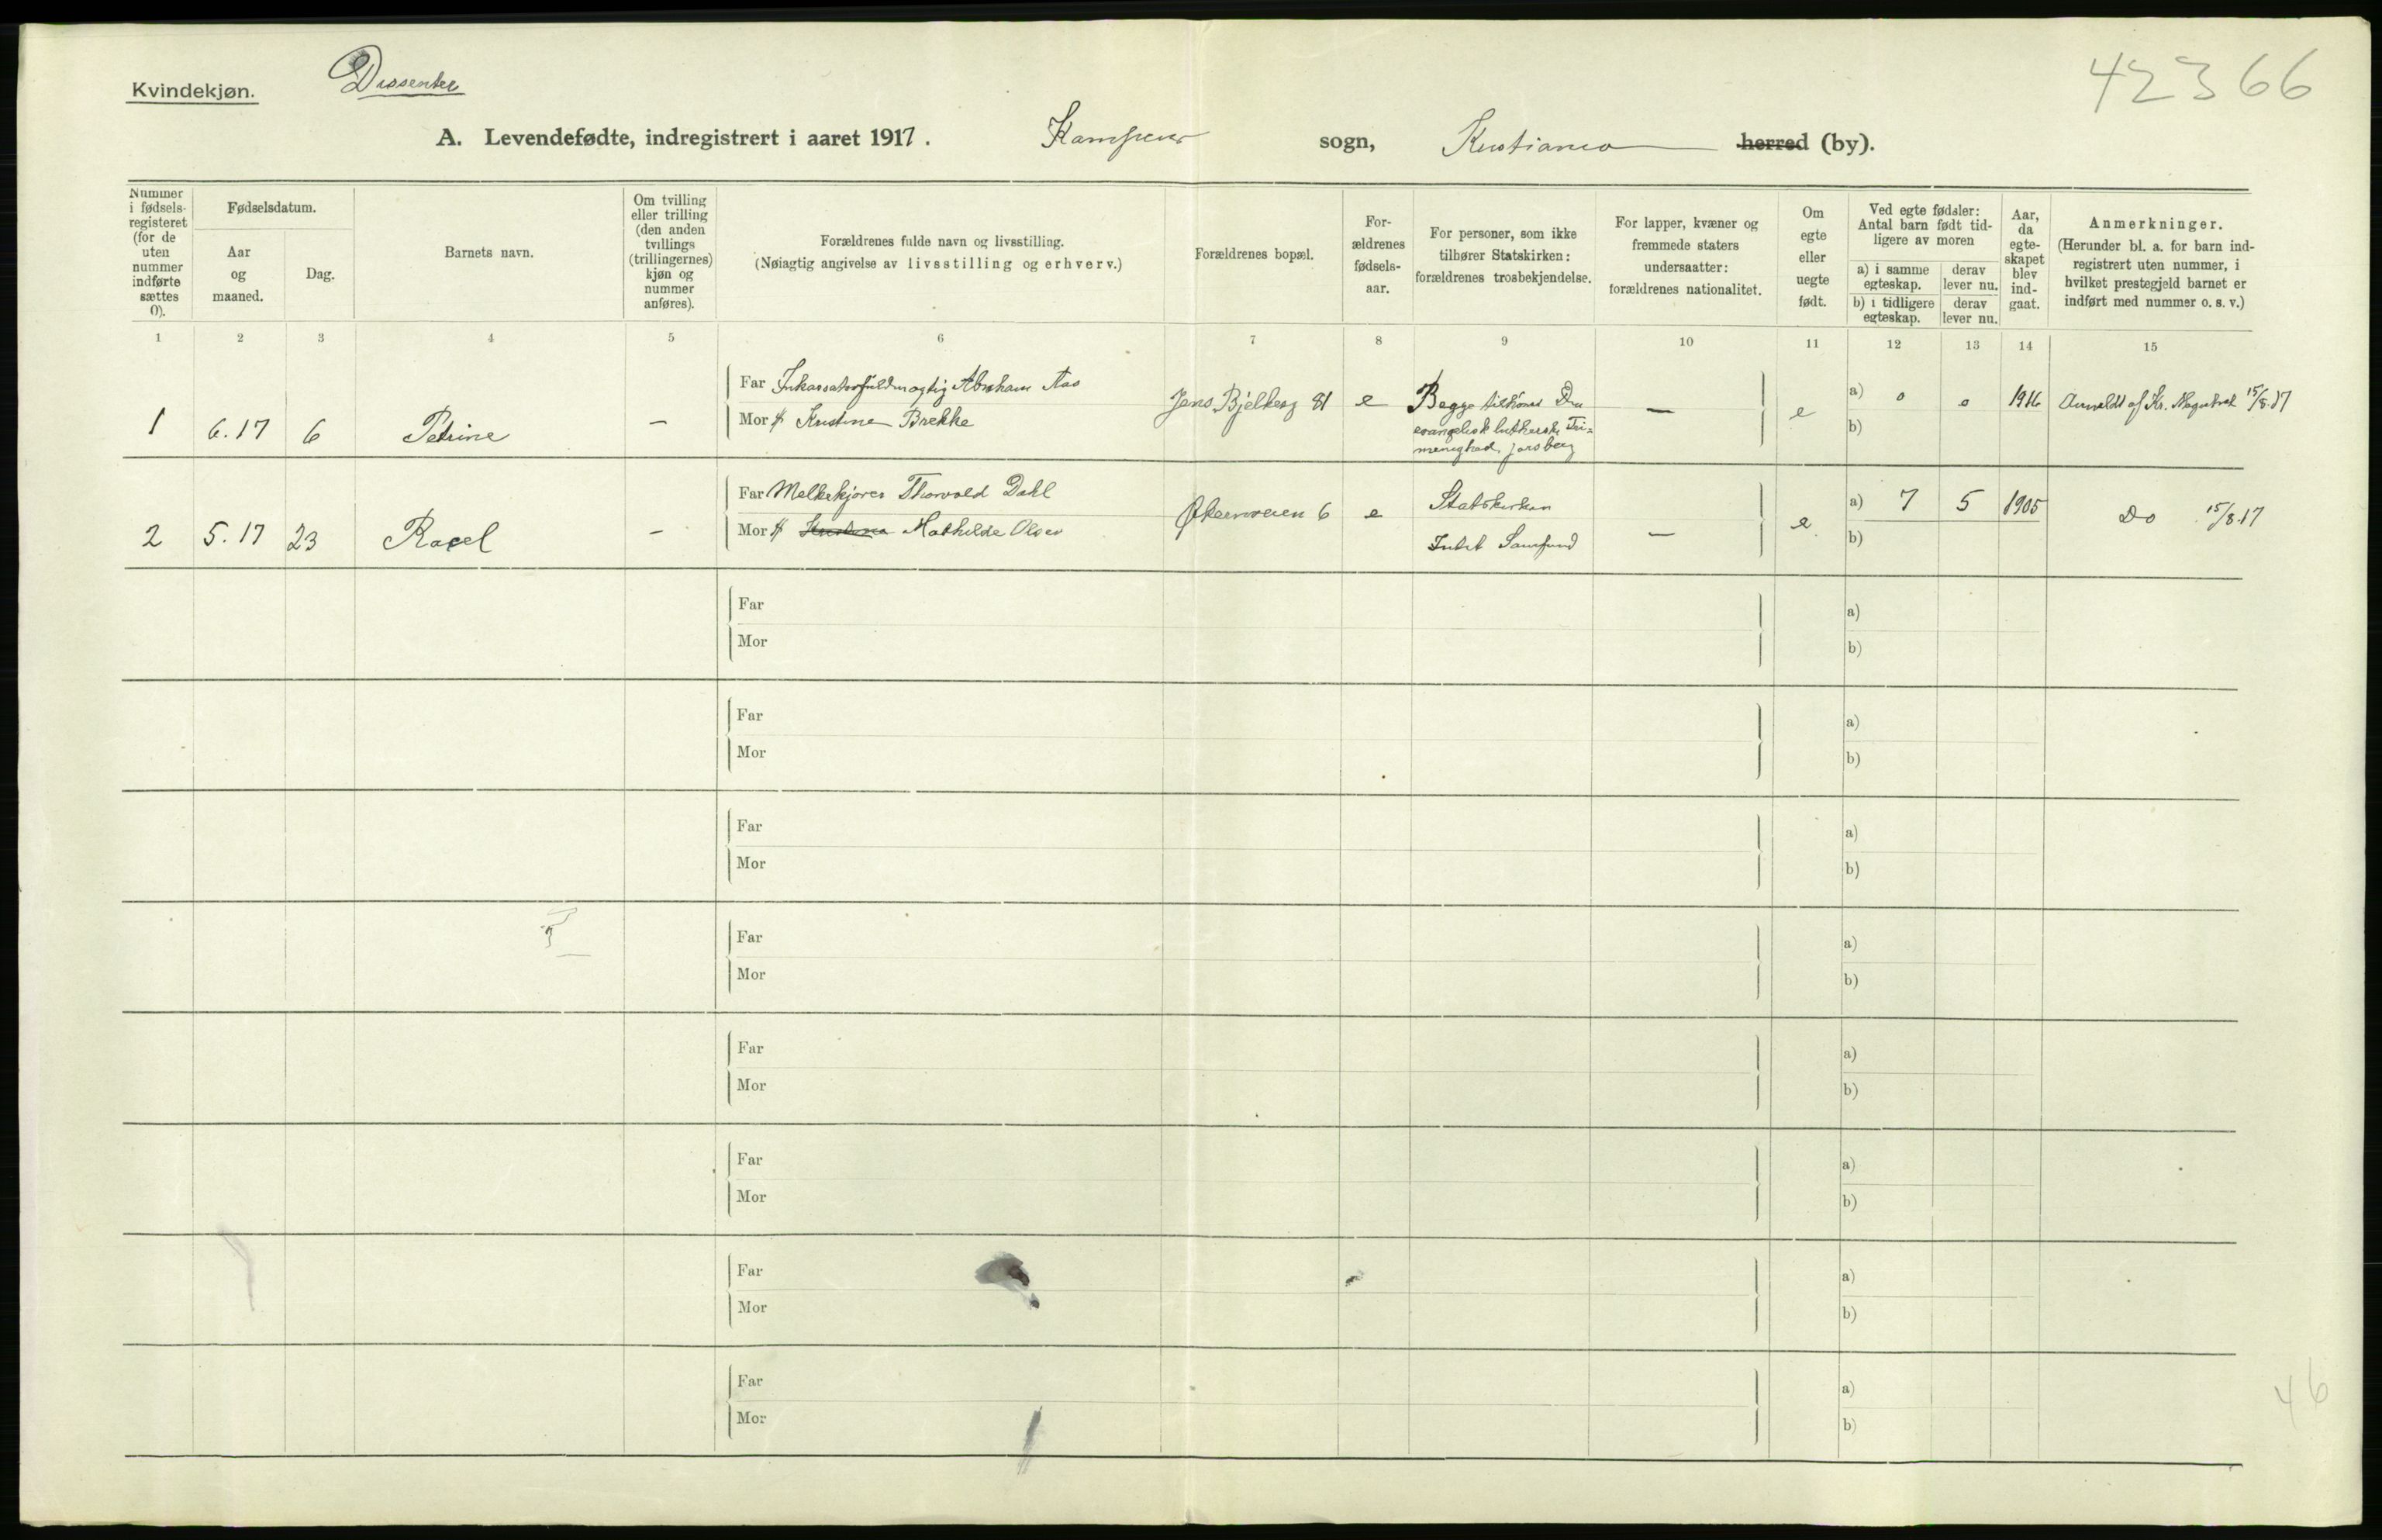 Kvindekjøn.
Dissenter
42366
A. Levendefødte, indregistrert i aaret 1917.
Kampens sogn, Kristiania herred (by).
Nummer i fødsels-registeret (for de uten nummer indførte sættes 0).
Fødselsdatum.
Aar og maaned.
Dag.
Barnets navn.
Om tvilling eller trilling (den anden tvillings (trillingernes) kjøn og nummer anføres).
Forældrenes fulde navn og livsstilling.
(Nøiagtig angivelse av livsstilling og erhverv.)
Forældrenes bopæl.
For-ældrenes fødsels-aar.
For personer, som ikke tilhører Statskirken: forældrenes trosbekjendelse.
For lapper, kvæner og fremmede staters undersaatter: forældrenes nationalitet.
Om egte eller uegte født.
Ved egte fødsler: Antal barn født tid-ligere av moren
a) i samme egteskap.
derav lever nu.
b) i tidligere egteskap.
derav lever nu.
Aar, da egte-skapet blev ind-gaat.
Anmerkninger.
(Herunder bl. a. for barn ind-registrert uten nummer, i hvilket prestegjeld barnet er indført med nummer o. s. v.)
1 2 3 4 5 6 7 8 9 10 11 12 13 14 15
1 6.17 6 Petrine —
Far Inkassatorfuldmægtig Abraham Aas
Mor Kristine Brekke
Jens Bjelkesg 81 e
Begge tilhører Den
evangelisk lutherske Fri=
menighed, Jarlsberg
— e
a) 0 0 1916
b)
Anmeldt af Kr. Magistrat 15/8.17
2 5.17 23 Racel —
Far Melkekjører Thorvald Dahl
Mor Kristine Mathilde Olsen
Økernveien 6 e
Statskirken
Intet Samfund
— e
a) 7 5 1905
b)
Do 15/8.17
Far a)
Mor b)
Far a)
Mor b)
Far a)
Mor b)
Far a)
Mor b)
Far a)
Mor b)
Far a)
Mor b)
Far a)
Mor b)
Far a)
Mor b)
46